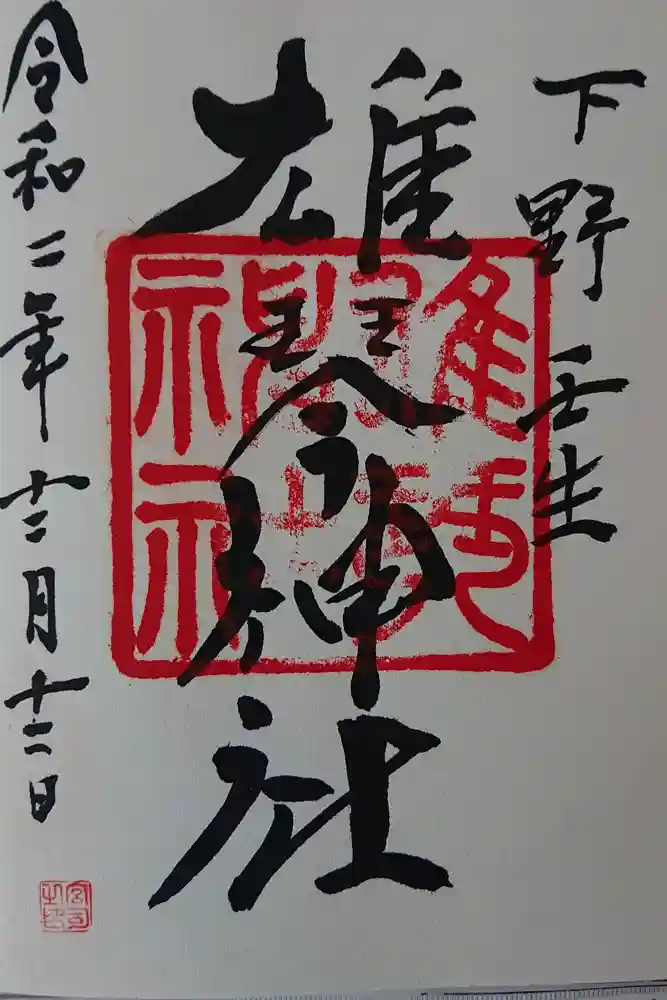 下野壬生
雄琴神社
令和二年十二月十二日